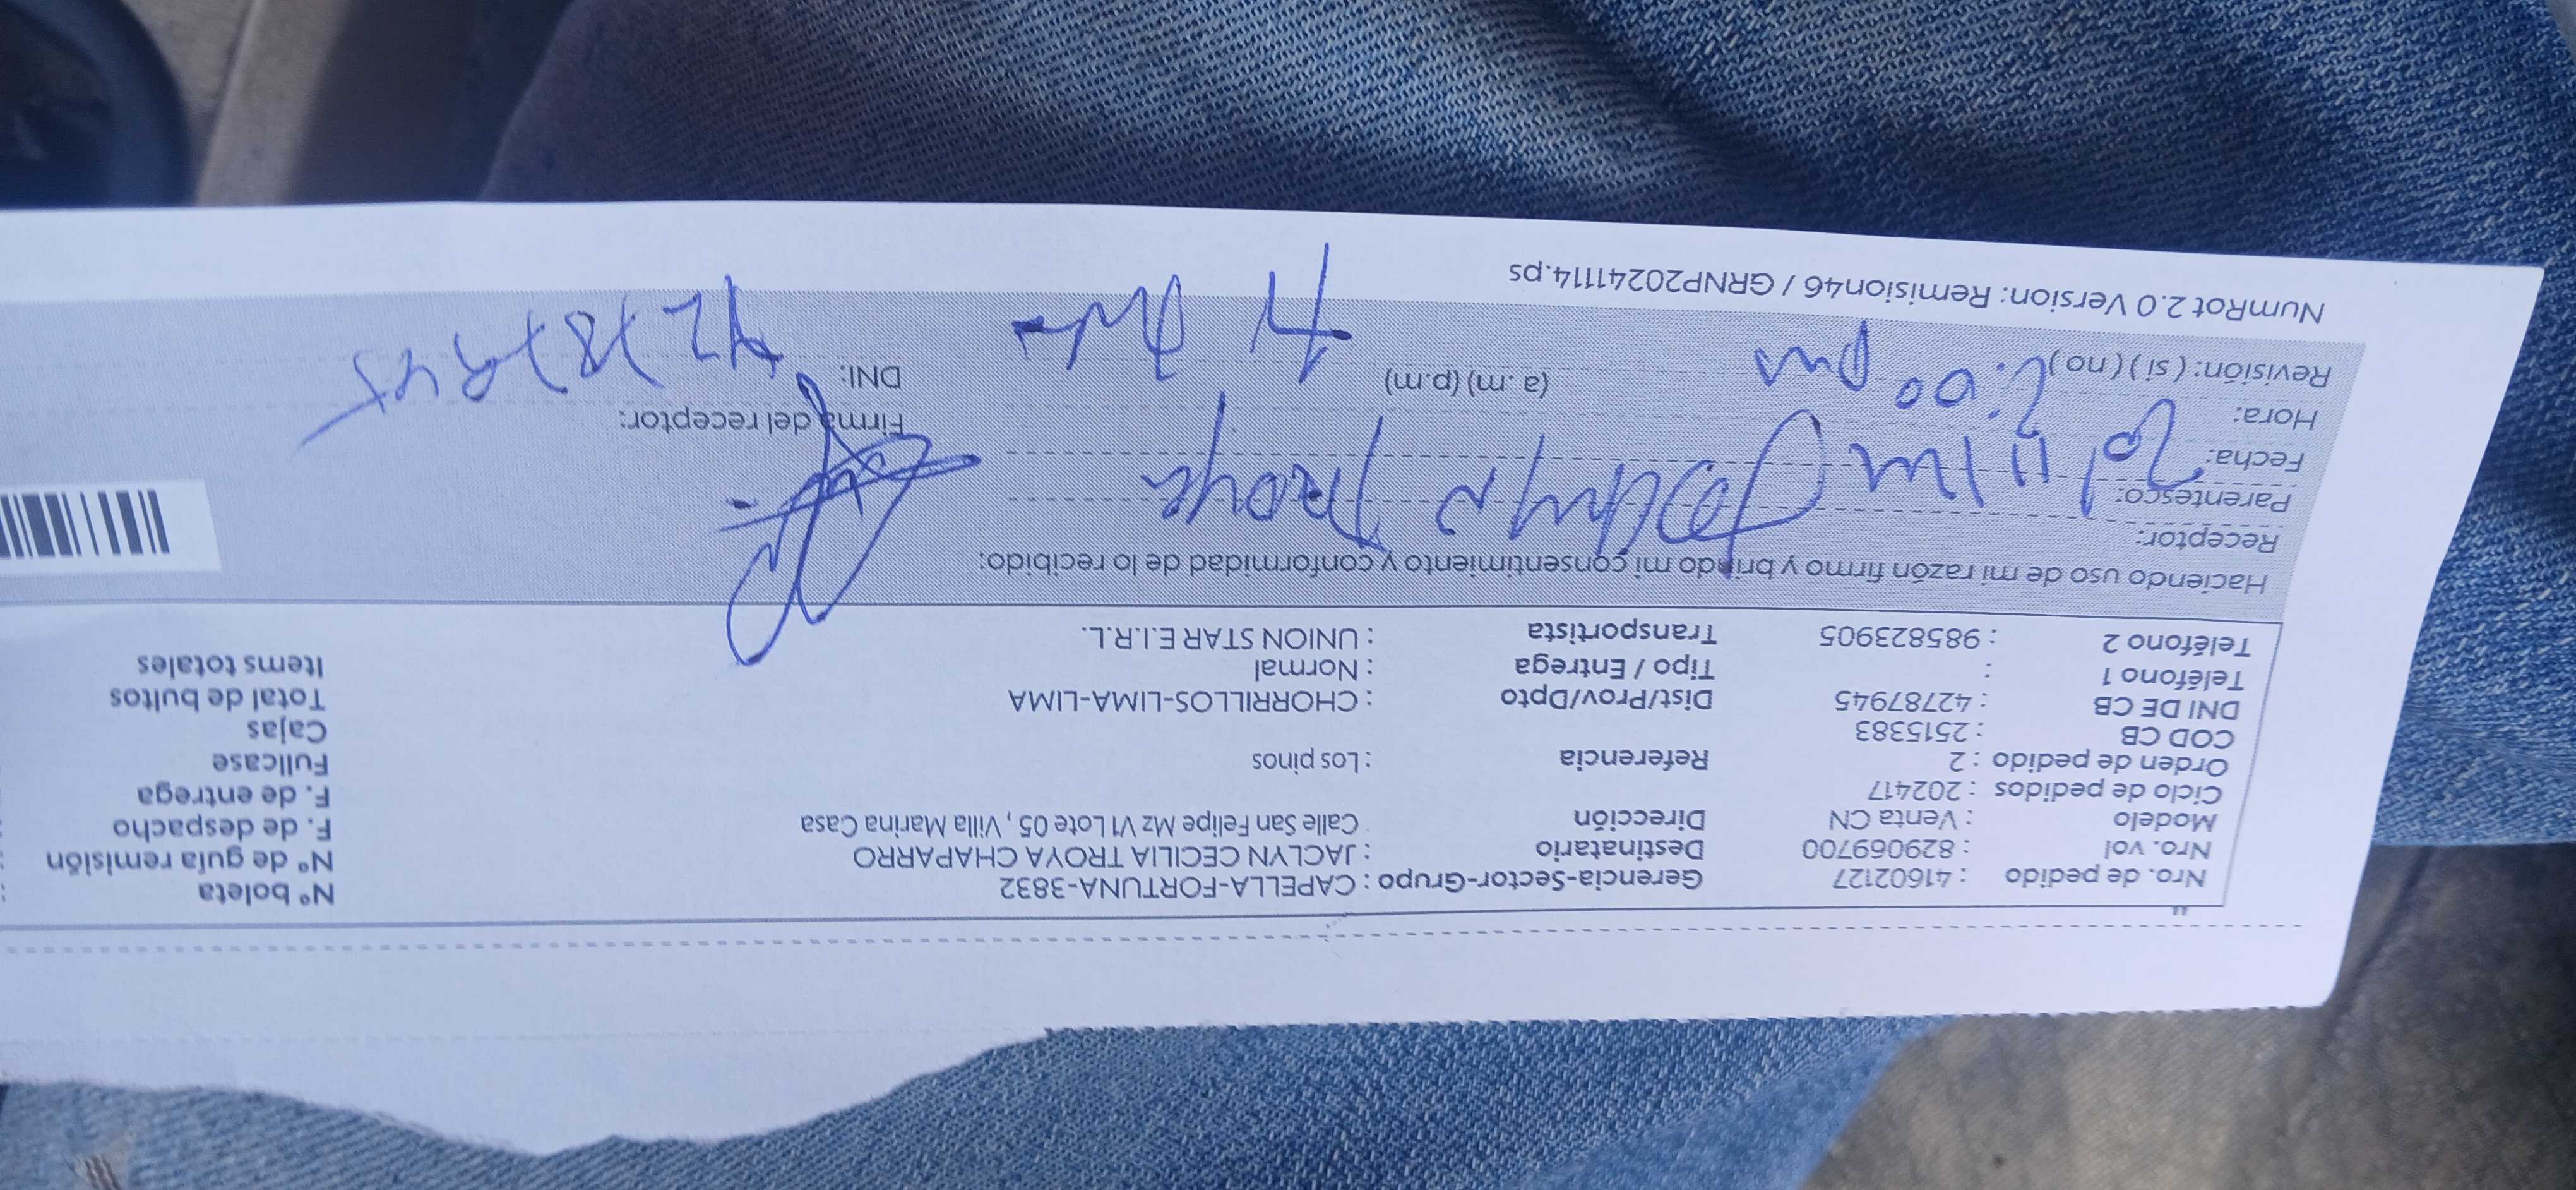 Nro. de pedido : 41602127 Gerencia-Sector-Grupo : CAPELLA-FORTUNA-3832 N° boleta :
Nro. vol : 829069700 Destinatario : JACLYN CECILIA TROYA CHAPARRO N° de guía remisión :
Modelo : Venta CN Dirección Calle San Felipe Mz V1 Lote 05 , Villa Marina Casa F. de despacho
Ciclo de pedidos : 202417 F. de entrega
Orden de pedido : 2 Referencia : Los pinos Fullcase
COD CB : 2515383 Cajas
DNI DE CB : 42787945 Dist/Prov/Dpto : CHORRILLOS-LIMA-LIMA Total de bultos
Teléfono 1 : Tipo / Entrega : Normal Items totales
Teléfono 2 : 985823905 Transportista : UNION STAR E.I.R.L.
Haciendo uso de mi razón firmo y brindo mi consentimiento y conformidad de lo recibido:
Receptor: Troya
Parentesco:
Fecha:
Hora: 2:00 pm (a.m) (p.m) Firma del receptor:
Revisión: ( si ) ( no ) DNI:
NumRot 2.0 Version: Remision46 / GRNP20241114.ps